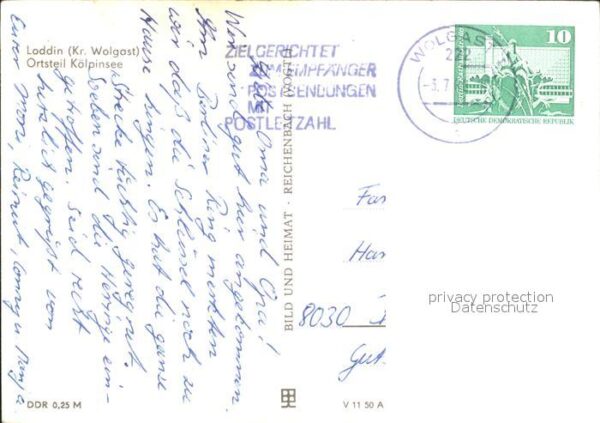 Loddin (Kr. Wolgast)
Ortsteil Kölpinsee
ZIELGERICHTET
ZUM EMPFÄNGER
POSTSENDUNGEN
MIT
POSTLEITZAHL
WOLGAST
222
10
DEUTSCHE DEMOKRATISCHE REPUBLIK
Oma und Opa!
Wir sind gut hier angekommen.
Am Berliner Ring merkten
wir daß die Schlüssel noch zu
Hause hingen. Es hat die ganze
Strecke richtig geregnet.
Soeben sind die Heringe ein-
getroffen. Seid recht
herzlich gegrüßt von
Eurer
BILD UND HEIMAT · REICHENBACH (VOGTL)
8030
privacy protection
Datenschutz
DDR 0,25 M
V 11 50 A